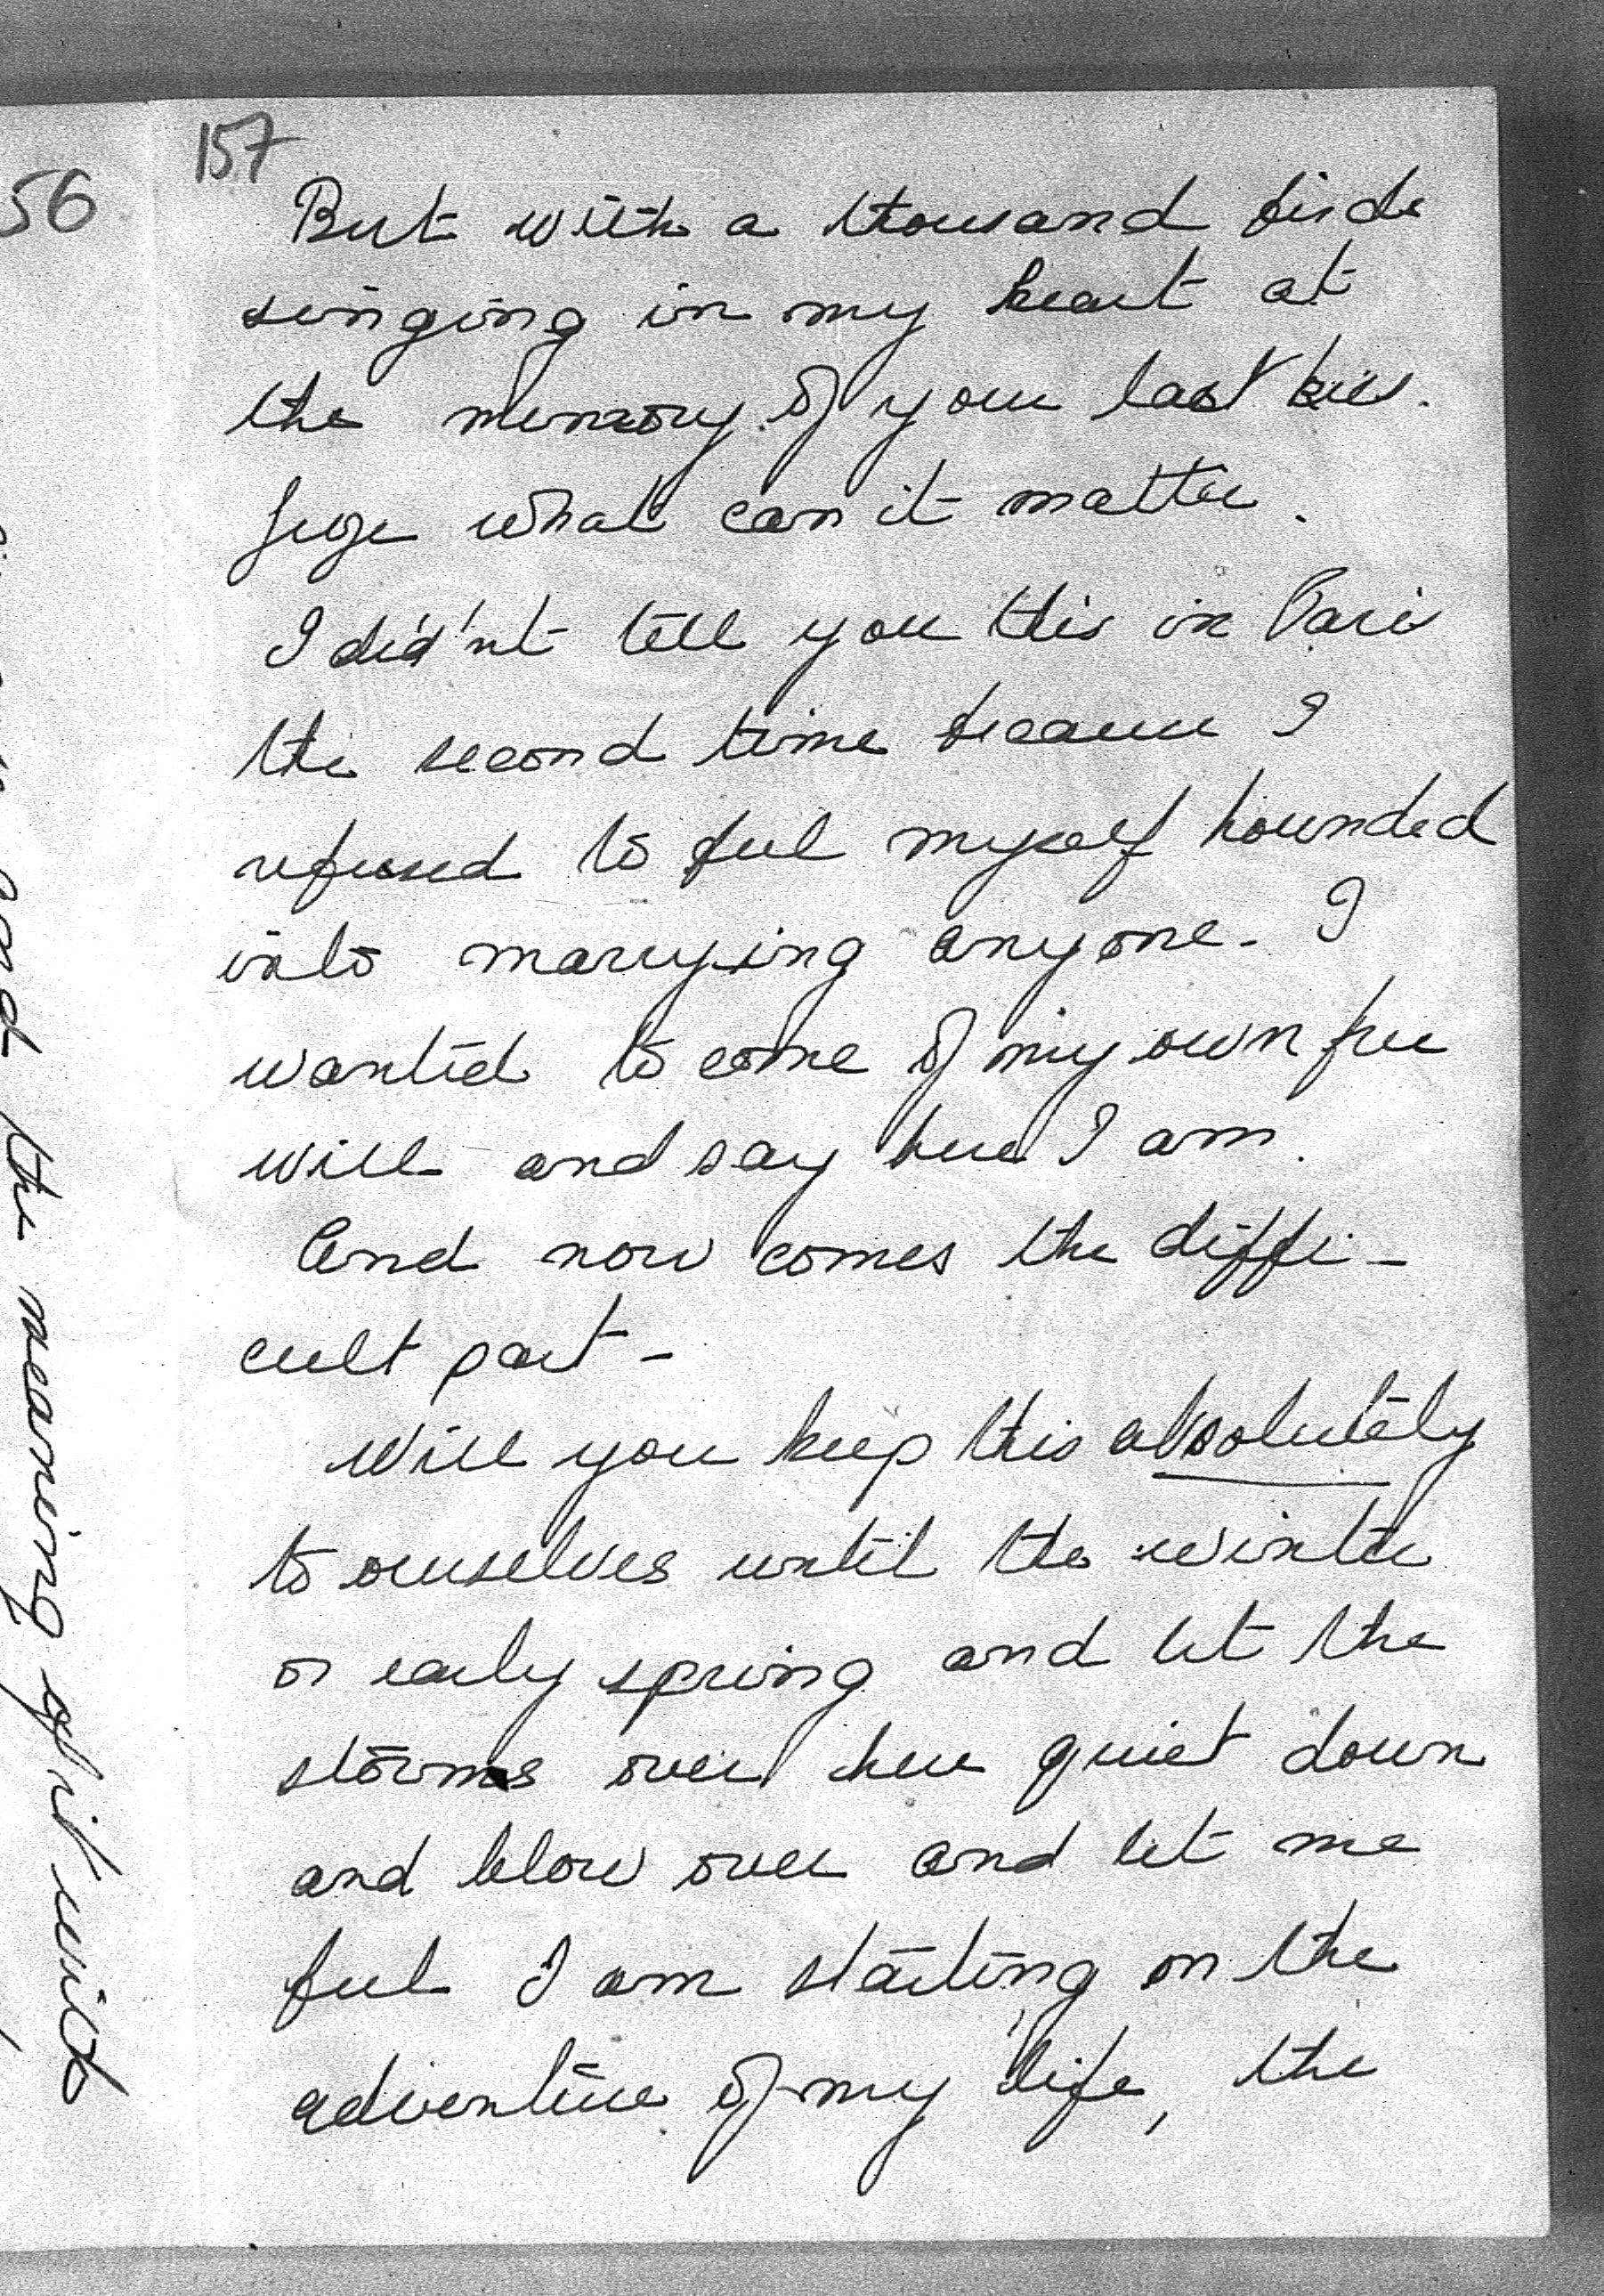 56
157
But with a thousand birds
singing in my heart at
the memory of your last kiss.
what can it matter.
I did'nt tell you this in Paris
the second time because I
refused to feel myself hounded
into marrying anyone. I
wanted to come of my own free
will and say here I am.
And now comes the diffi-
cult part -
Will you keep this absolutely
to ourselves until the winter
or early spring and let the
storms over here quiet down
and blow over and let me
feel I am starting on the
adventure of my life, the
the meaning of it with